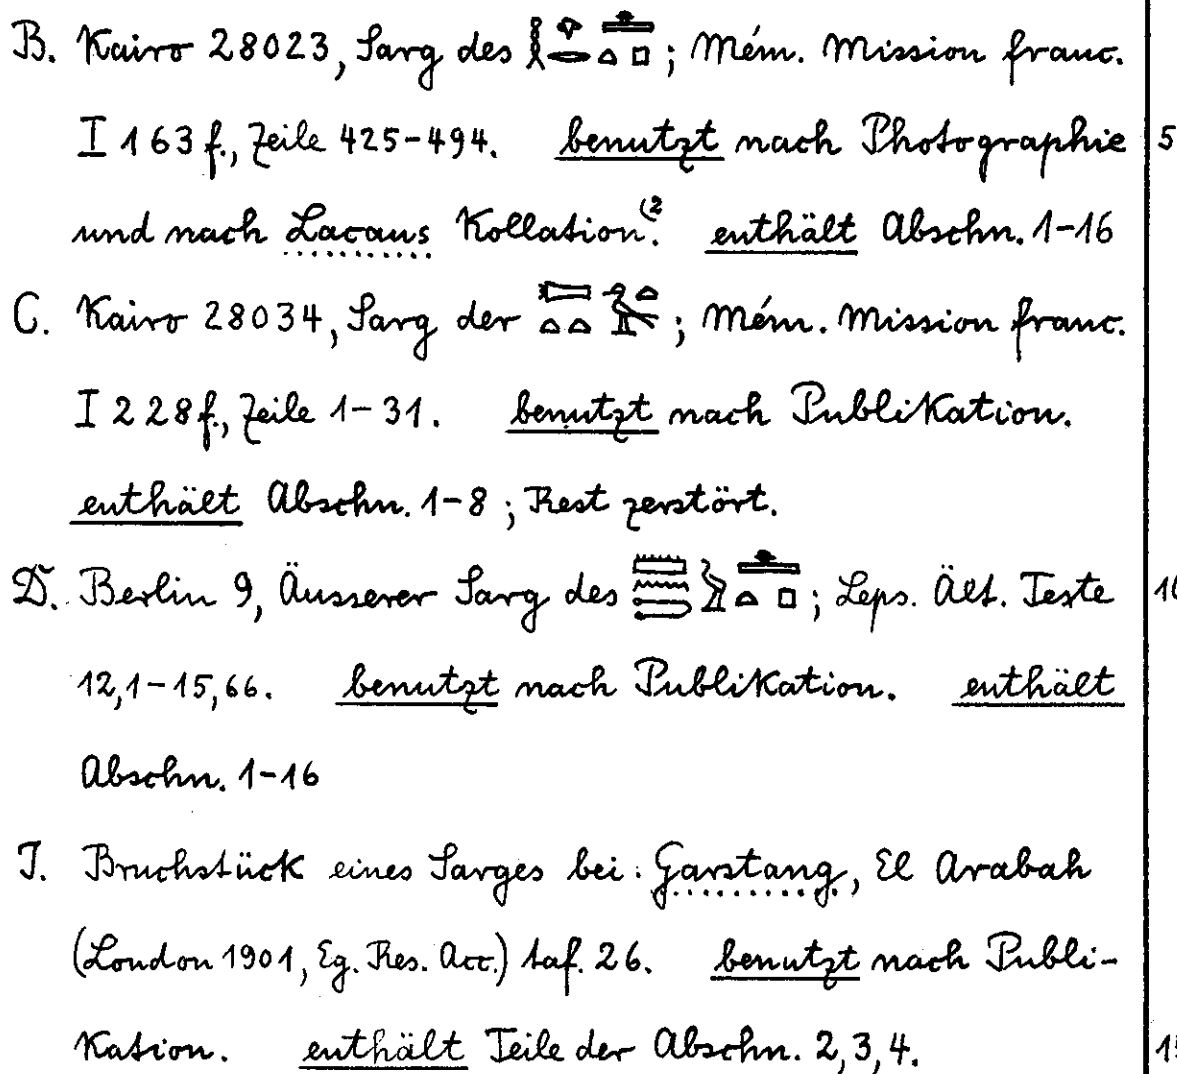 B. Kairo 28023, Sarg des 𓎛𓁷𓂋𓊵𓏏𓊪; Mém. Mission franc.
I 163 f., Zeile 425-494. benutzt nach Photographie 5
und nach Lacaus Kollation.(2 enthält Abschn. 1-16
C. Kairo 28034, Sarg der ; Mém. Mission franc.
I 228 f., Zeile 1-31. benutzt nach Publikation.
enthält Abschn. 1-8; Rest zerstört.
D. Berlin 9, Äusserer Sarg des 𓏠𓈖𓍿𓅱𓊵𓏏𓊪; Leps. Ält. Texte 10
12,1-15,66. benutzt nach Publikation. enthält
Abschn. 1-16
J. Bruchstück eines Sarges bei: Garstang, El Arabah
(London 1901, Eg. Res. Acc.) taf. 26. benutzt nach Publi-
kation. enthält Teile der Abschn. 2, 3, 4. 15